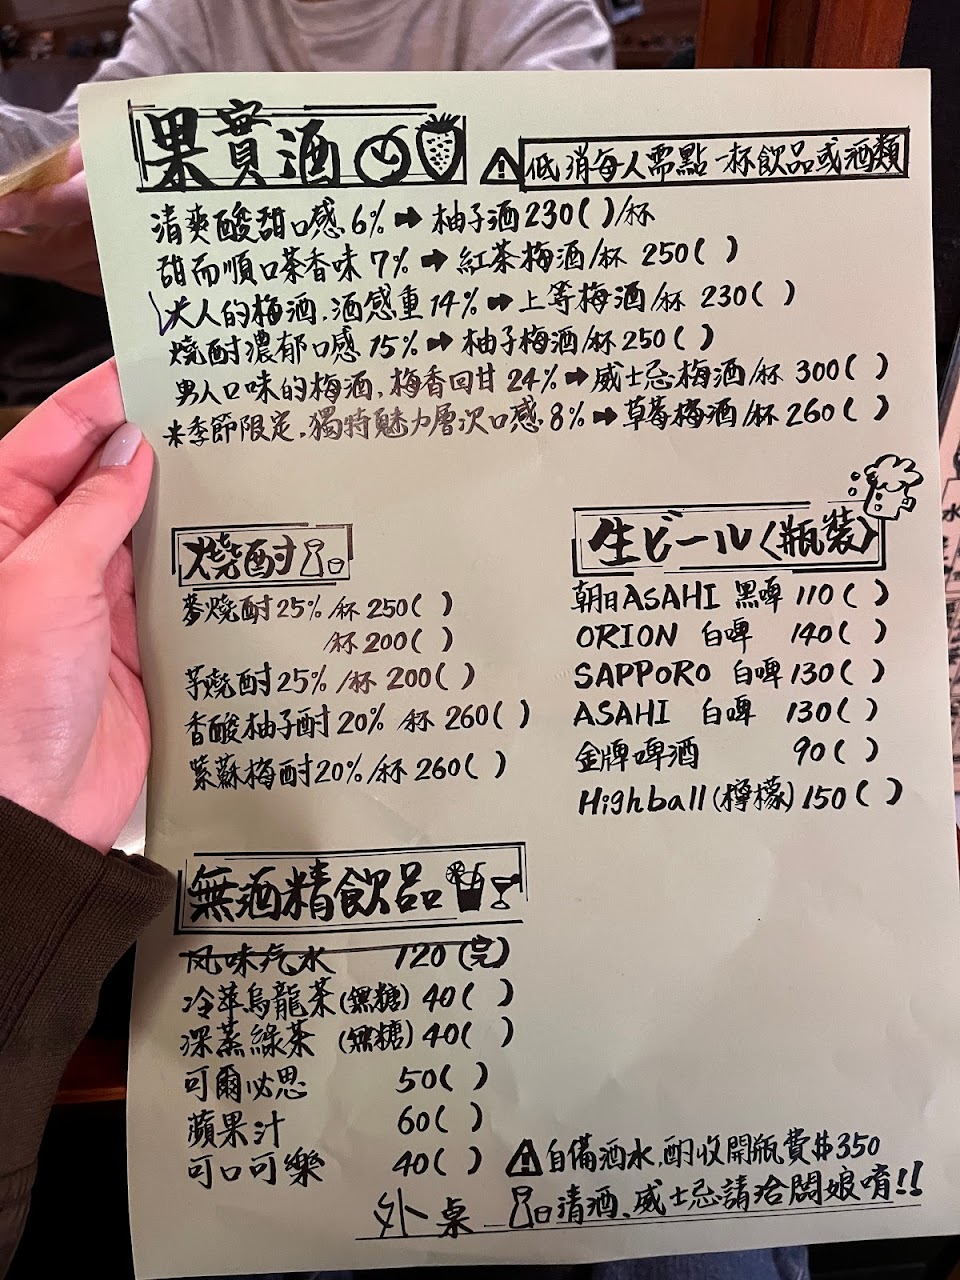 果實酒
⚠低消每人需點一杯飲品或酒類
清爽酸甜口感 6% ➡ 柚子酒 230( )/杯
甜而順口茶香味 7% ➡ 紅茶梅酒/杯 250( )
大人的梅酒,酒感重 14% ➡ 上等梅酒/杯 230( )
燒酎濃郁口感 15% ➡ 柚子梅酒/杯 250( )
男人口味的梅酒,梅香回甘 24% ➡ 威士忌梅酒/杯 300( )
*季節限定,獨特魅力層次口感 8% ➡ 草莓梅酒/杯 260( )
燒酎
麥燒酎 25%/杯 250( )
/杯 200( )
芋燒酎 25%/杯 200( )
香酸柚子酎 20%/杯 260( )
紫蘇梅酎 20%/杯 260( )
生ビール〈瓶裝〉
朝日ASAHI 黑啤 110( )
ORION 白啤 140( )
SAPPORO 白啤 130( )
ASAHI 白啤 130( )
金牌啤酒 90( )
Highball(檸檬) 150( )
無酒精飲品
风味汽水 120(完)
冷萃烏龍茶(無糖) 40( )
深蒸綠茶(無糖) 40( )
可爾必思 50( )
蘋果汁 60( )
可口可樂 40( )
⚠自備酒水,酌收開瓶費$350
清酒、威士忌請洽闆娘唷!!
外桌